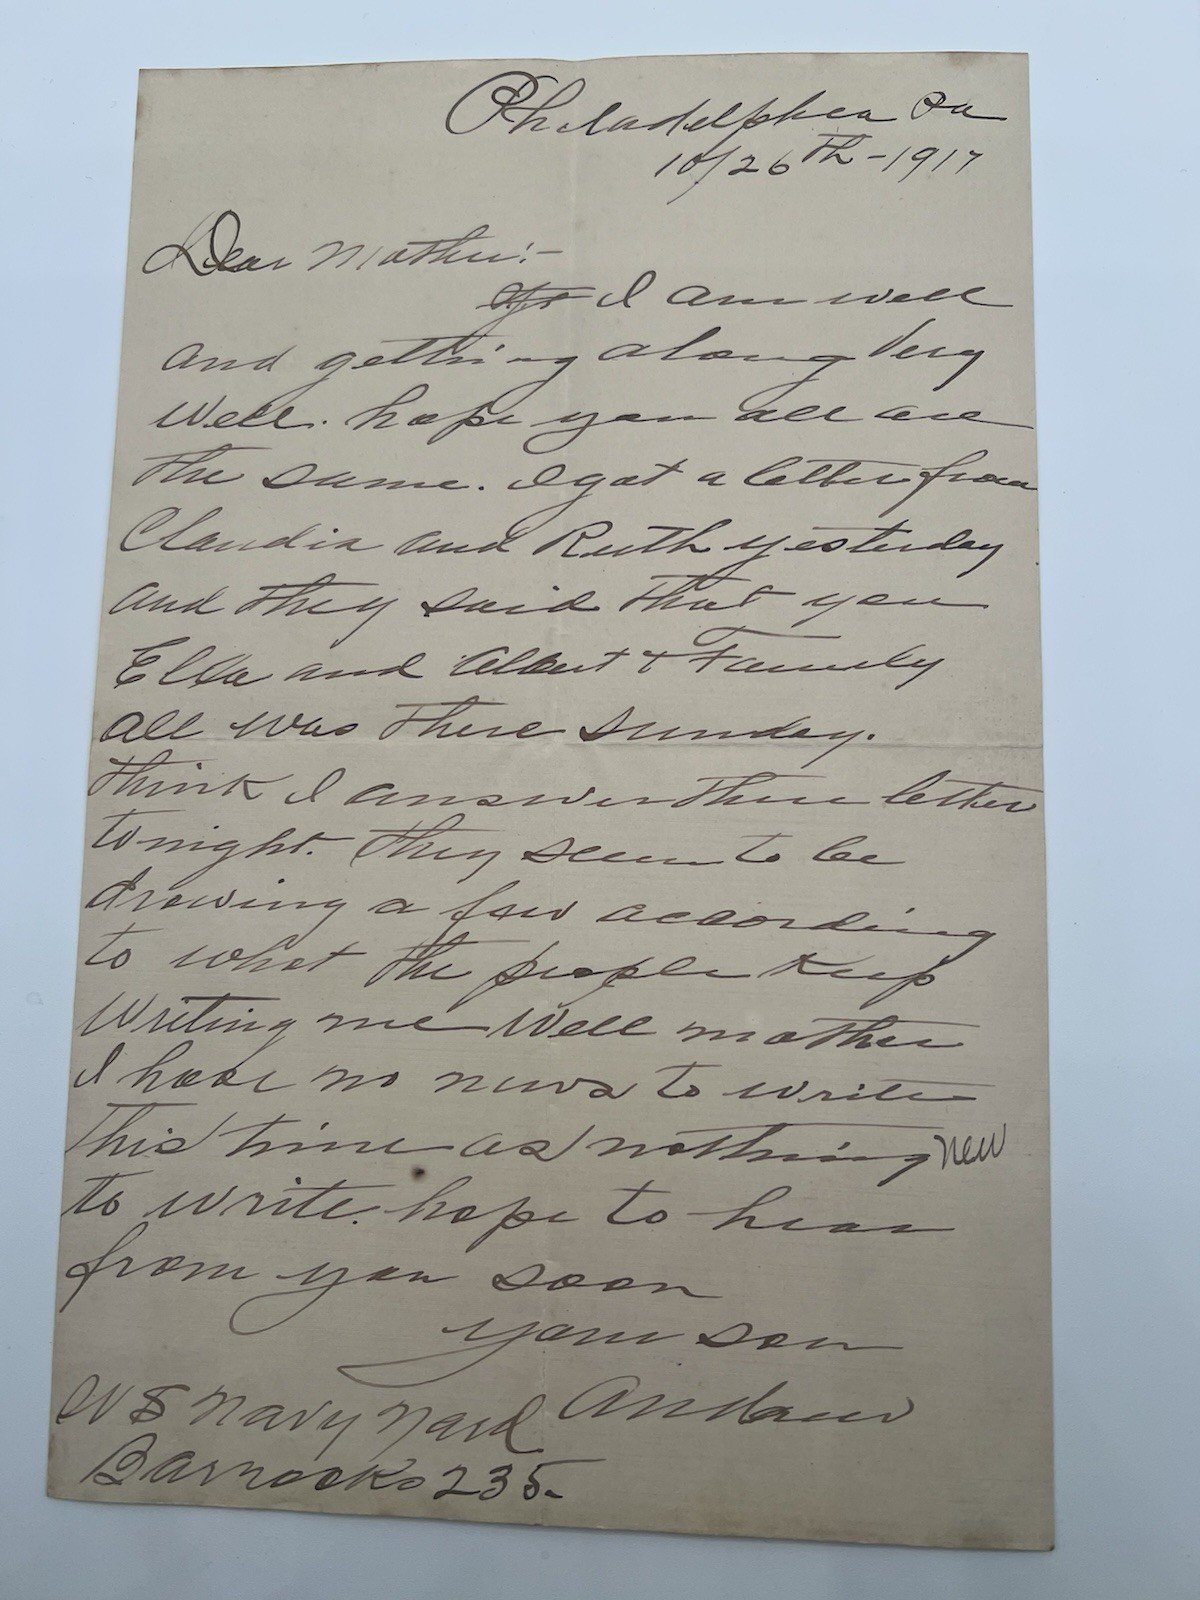 Philadelphia Pa
10/26th - 1917
Dear Mother:-
I am well
and getting along Very
Well. hope you all are
the same. I got a letter from
Claudia and Ruth yesterday
and they said that you
Ella and Albert & Family
all was there Sunday.
think I answer there letter
tonight. they seem to be
drawing a few according
to what the people keep
Writing me Well mother
I have no news to write
this time as nothing new
to write. hope to hear
from you soon
your son
Andrew
U S Navy Yard
Barracks 235-